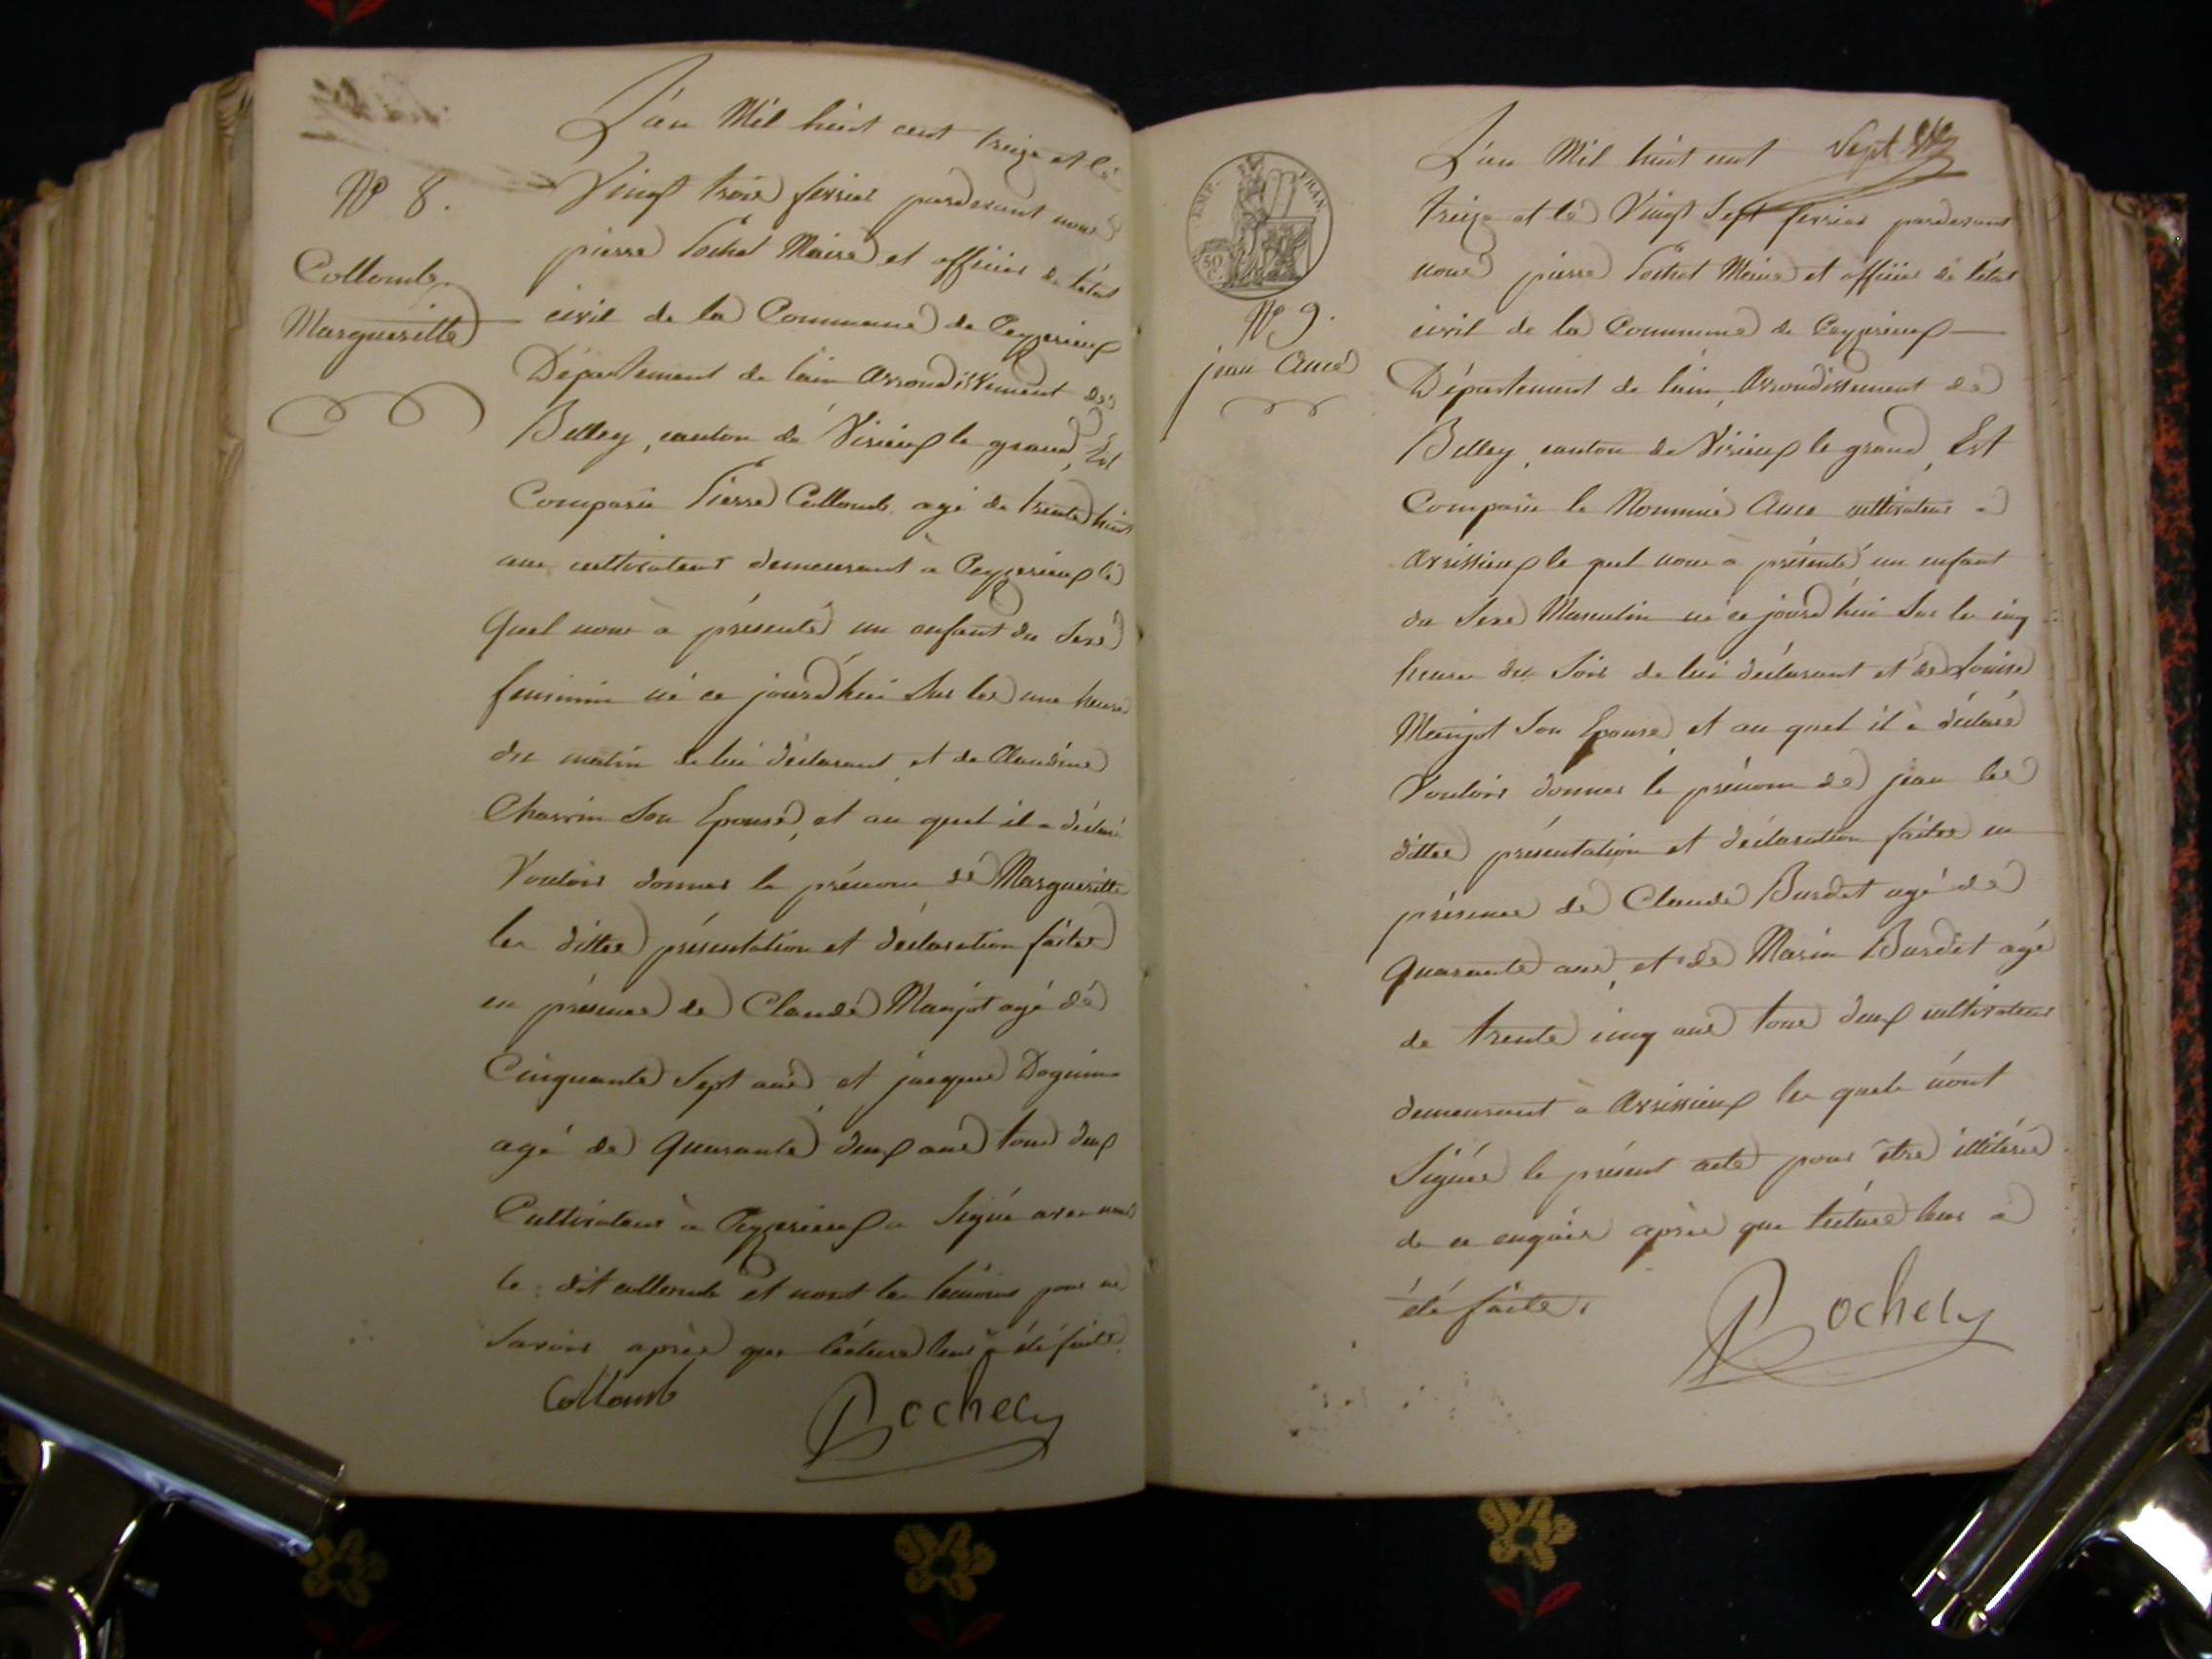 N° 8.
Collomb
Margueritte
L'an Mil huit cent treize et le
Vingt trois fevrier pardevant nous
pierre Pochet Maire et officier de l'état
civil de la Commune de Ceyzerieux
Département de lain Arrondissement de
Belley, canton de Virieux le grand, Est
Comparu Pierre Collomb agé de trente huit
ans cultivateur demeurant à Ceyzerieux le
quel nous à présenté un enfant du Sexe
feminin né ce jourd'hui Sur les une heure
du matin de lui déclarant et de Claudine
Charvin Son Epouse, et au quel il a déclaré
Vouloir donner le prénom de Margueritte
les dittes présentation et déclaration faites
en présence de Claude Manjot agé de
Cinquante Sept ans et jacques
agé de quarante deux ans tous deux
Cultivateur à Ceyzerieux a Signé avec nous
le dit collomb et nont les témoins pour ne
Savoir après que lécture leur à été faite.
Collomb
Pochet
Sept
EMP. FRAN.
50 C.
N° 9.
jean Ance
L'an Mil huit cent
treize et le Vingt Sept fevrier pardevant
nous pierre Pochet Maire et officier de l'état
civil de la Commune de Ceyzerieux
Département de lain, Arrondissement de
Belley, canton de Virieux le grand, Est
Comparu le Nommé Ance cultivateur à
Avrissieux le quel nous à présenté un enfant
du Sexe Masculin né ce jourd'hui Sur les cinq
heures du Soir de lui déclarant et de Louise
Manjot Son Epouse et au quel il à déclaré
Vouloir donner le prénom de jean les
dittes présentation et déclaration faites en
présence de Claude Burdet agé de
quarante ans, et de Marin Burdet agé
de trente cinq ans tous deux cultivateurs
demeurant à Avrissieux les quels n'ont
Signés le présent acte pour être illitérés
de ce enquis après que lécture leur à
été faite.
Pochet